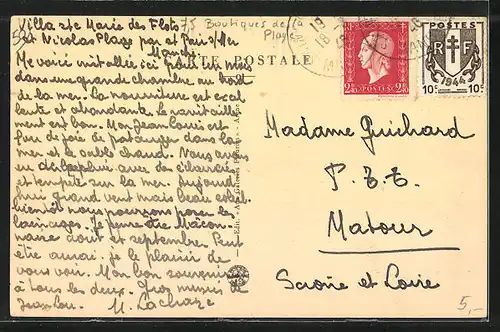 Villa Ste Marie des Flots
St Nicolas Plage par
Manche
75 Boutiques de la
Plage
CARTE POSTALE
Me voici installée ici
dans une grande chambre au bord
de la mer. La nourriture est excel
lente et abondante. Le ravitaille
ment est bon. Mon Jean Louis est
fou de joie de patauger dans la
mer et le sable chaud. Nous avons
eu
tempête sur la mer. Aujourd
hui grand vent mais beau soleil
bientôt nous pourrons poser les
lainages. Je pense être à Mâcon
août et septembre. Peut
être aurai-je le plaisir de
vous voir. Mon bon souvenir
à tous les deux. Gros mimis de
Jean Lou. M. Lachaze
18
POSTES
2F 2F
POSTES
RF
1944
10c 10c
Madame Guichard
P.T.T.
Matour
Saône et Loire
5,-